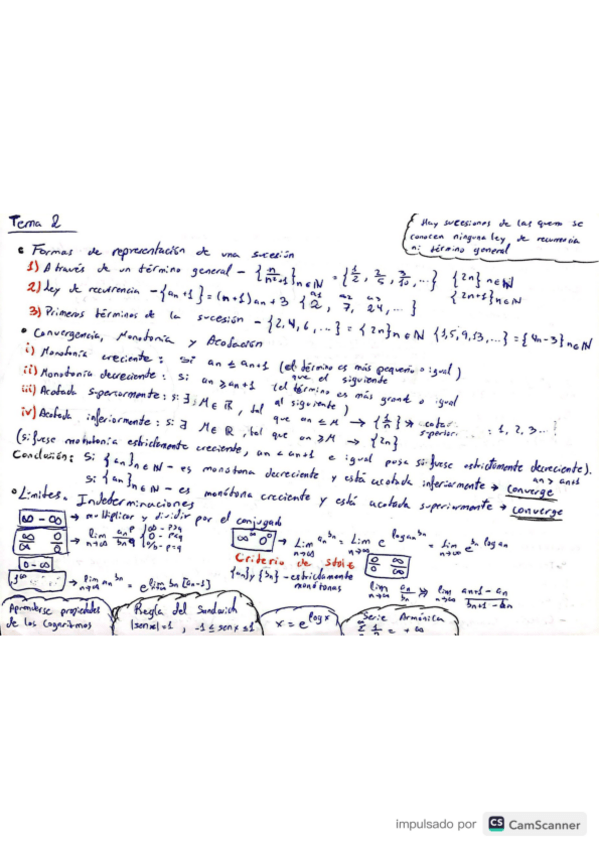 Tema 2
Hay sucesiones de las que no se
conocen ninguna ley de recurrencia
n: término general
• Formas de representación de una sucesión
1) A través de un término general – {n/n²+1}n∈ℕ = {1/2, 2/5, 3/10, ...} {2n}n∈ℕ
{2n+1}n∈ℕ
2) Ley de recurrencia – {an+1} = (n+1)an + 3 {2, 7, 24, ...}
a1 a2 a3
3) Primeros términos de la sucesión – {2, 4, 6, ...} = {2n}n∈ℕ {1, 5, 9, 13, ...} = {4n-3}n∈ℕ
• Convergencia, Monotonía y Acotación
i) Monotonía creciente: si an ≤ an+1 (el término es más pequeño o igual)
que el siguiente
ii) Monotonía decreciente: si an ≥ an+1 (el término es más grand o igual
al siguiente)
iii) Acotada superiormente: si ∃ M ∈ ℝ, tal que an ≤ M → {1/n}
iv) Acotada inferiormente: si ∃ M ∈ ℝ, tal que an ≥ M → {2n}
: 1, 2, 3...
(si fuese monotonía estrictamente creciente, an < an+1 e igual pasa si fuese estrictamente decreciente).
an > an+1
Conclusión: Si {an}n∈ℕ – es monótona decreciente y está acotada inferiormente → converge
Si {an}n∈ℕ – es monótona creciente y está acotada superiormente → converge
• Límites. Indeterminaciones
∞ - ∞ → multiplicar y dividir por el conjugado
∞/∞ 0/0 → lim n→∞ an^p/bn^q
∞ – p>q
0 – p<q
a/b – p=q
∞⁰ 0⁰ → Lim n→∞ an^bn = Lim n→∞ e^log an^bn = Lim n→∞ e^bn log an
0 - ∞
Criterio de Stolz
0/0 ∞/∞
{an} y {bn} – estrictamente
monótonas
lim n→∞ an/bn => lim n→∞ an+1 - an / bn+1 - bn
1^∞ → lim n→∞ an^bn = e^lim bn[an-1]
Aprenderse propiedades
de los logaritmos
Regla del Sandwich
|senx|=1, -1 ≤ senx ≤ 1
x = e^logx
Serie Armónica
Σ 1/n = +∞
impulsado por CS CamScanner